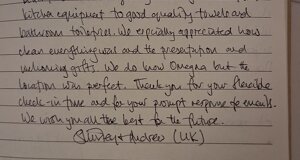 kitchen equipment to good quality towels and
bathroom toiletries. We especially appreciated how
clean everything was and the presentation and
welcoming gifts. We do know Omegna but the
location was perfect. Thank you for your flexible
check-in time and for your prompt response to emails.
We wish you all the best for the future.
Shirley & Andrew (UK)